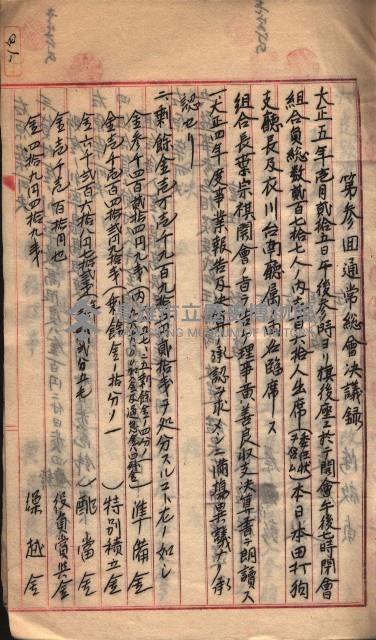 第參回通常総會决議録
大正五年壱月貳拾五日午後參時ヨリ旗後座ニ於テ開會午後七時閉會
組合員総数貳百七拾七人ノ内壱百六拾人出席(委任状ヲ含ム)本日本田打狗
支廳長及衣川台南廳属臨席ス
組合長葉宗祺開會ノ旨ヲ告ケ理事黄善良収支决算書ヲ朗讀ス
一、大正四年度事業報告及决算ノ承認ヲ求メシニ満塲異議ナク承
認セリ
二、剰餘金壱万壱千九百九拾円貳拾貳ヲ処分スルコト左ノ如シ
金參千四百貳拾四円九 準備金
金壱千壱百四拾貳円拾 (剰餘金ノ拾分ノ一) 特別積立金
金六千貳百六拾八円七拾貳 配當金
金壱千壱百拾円也 役員賞與金
金四拾九円四拾九 繰越金